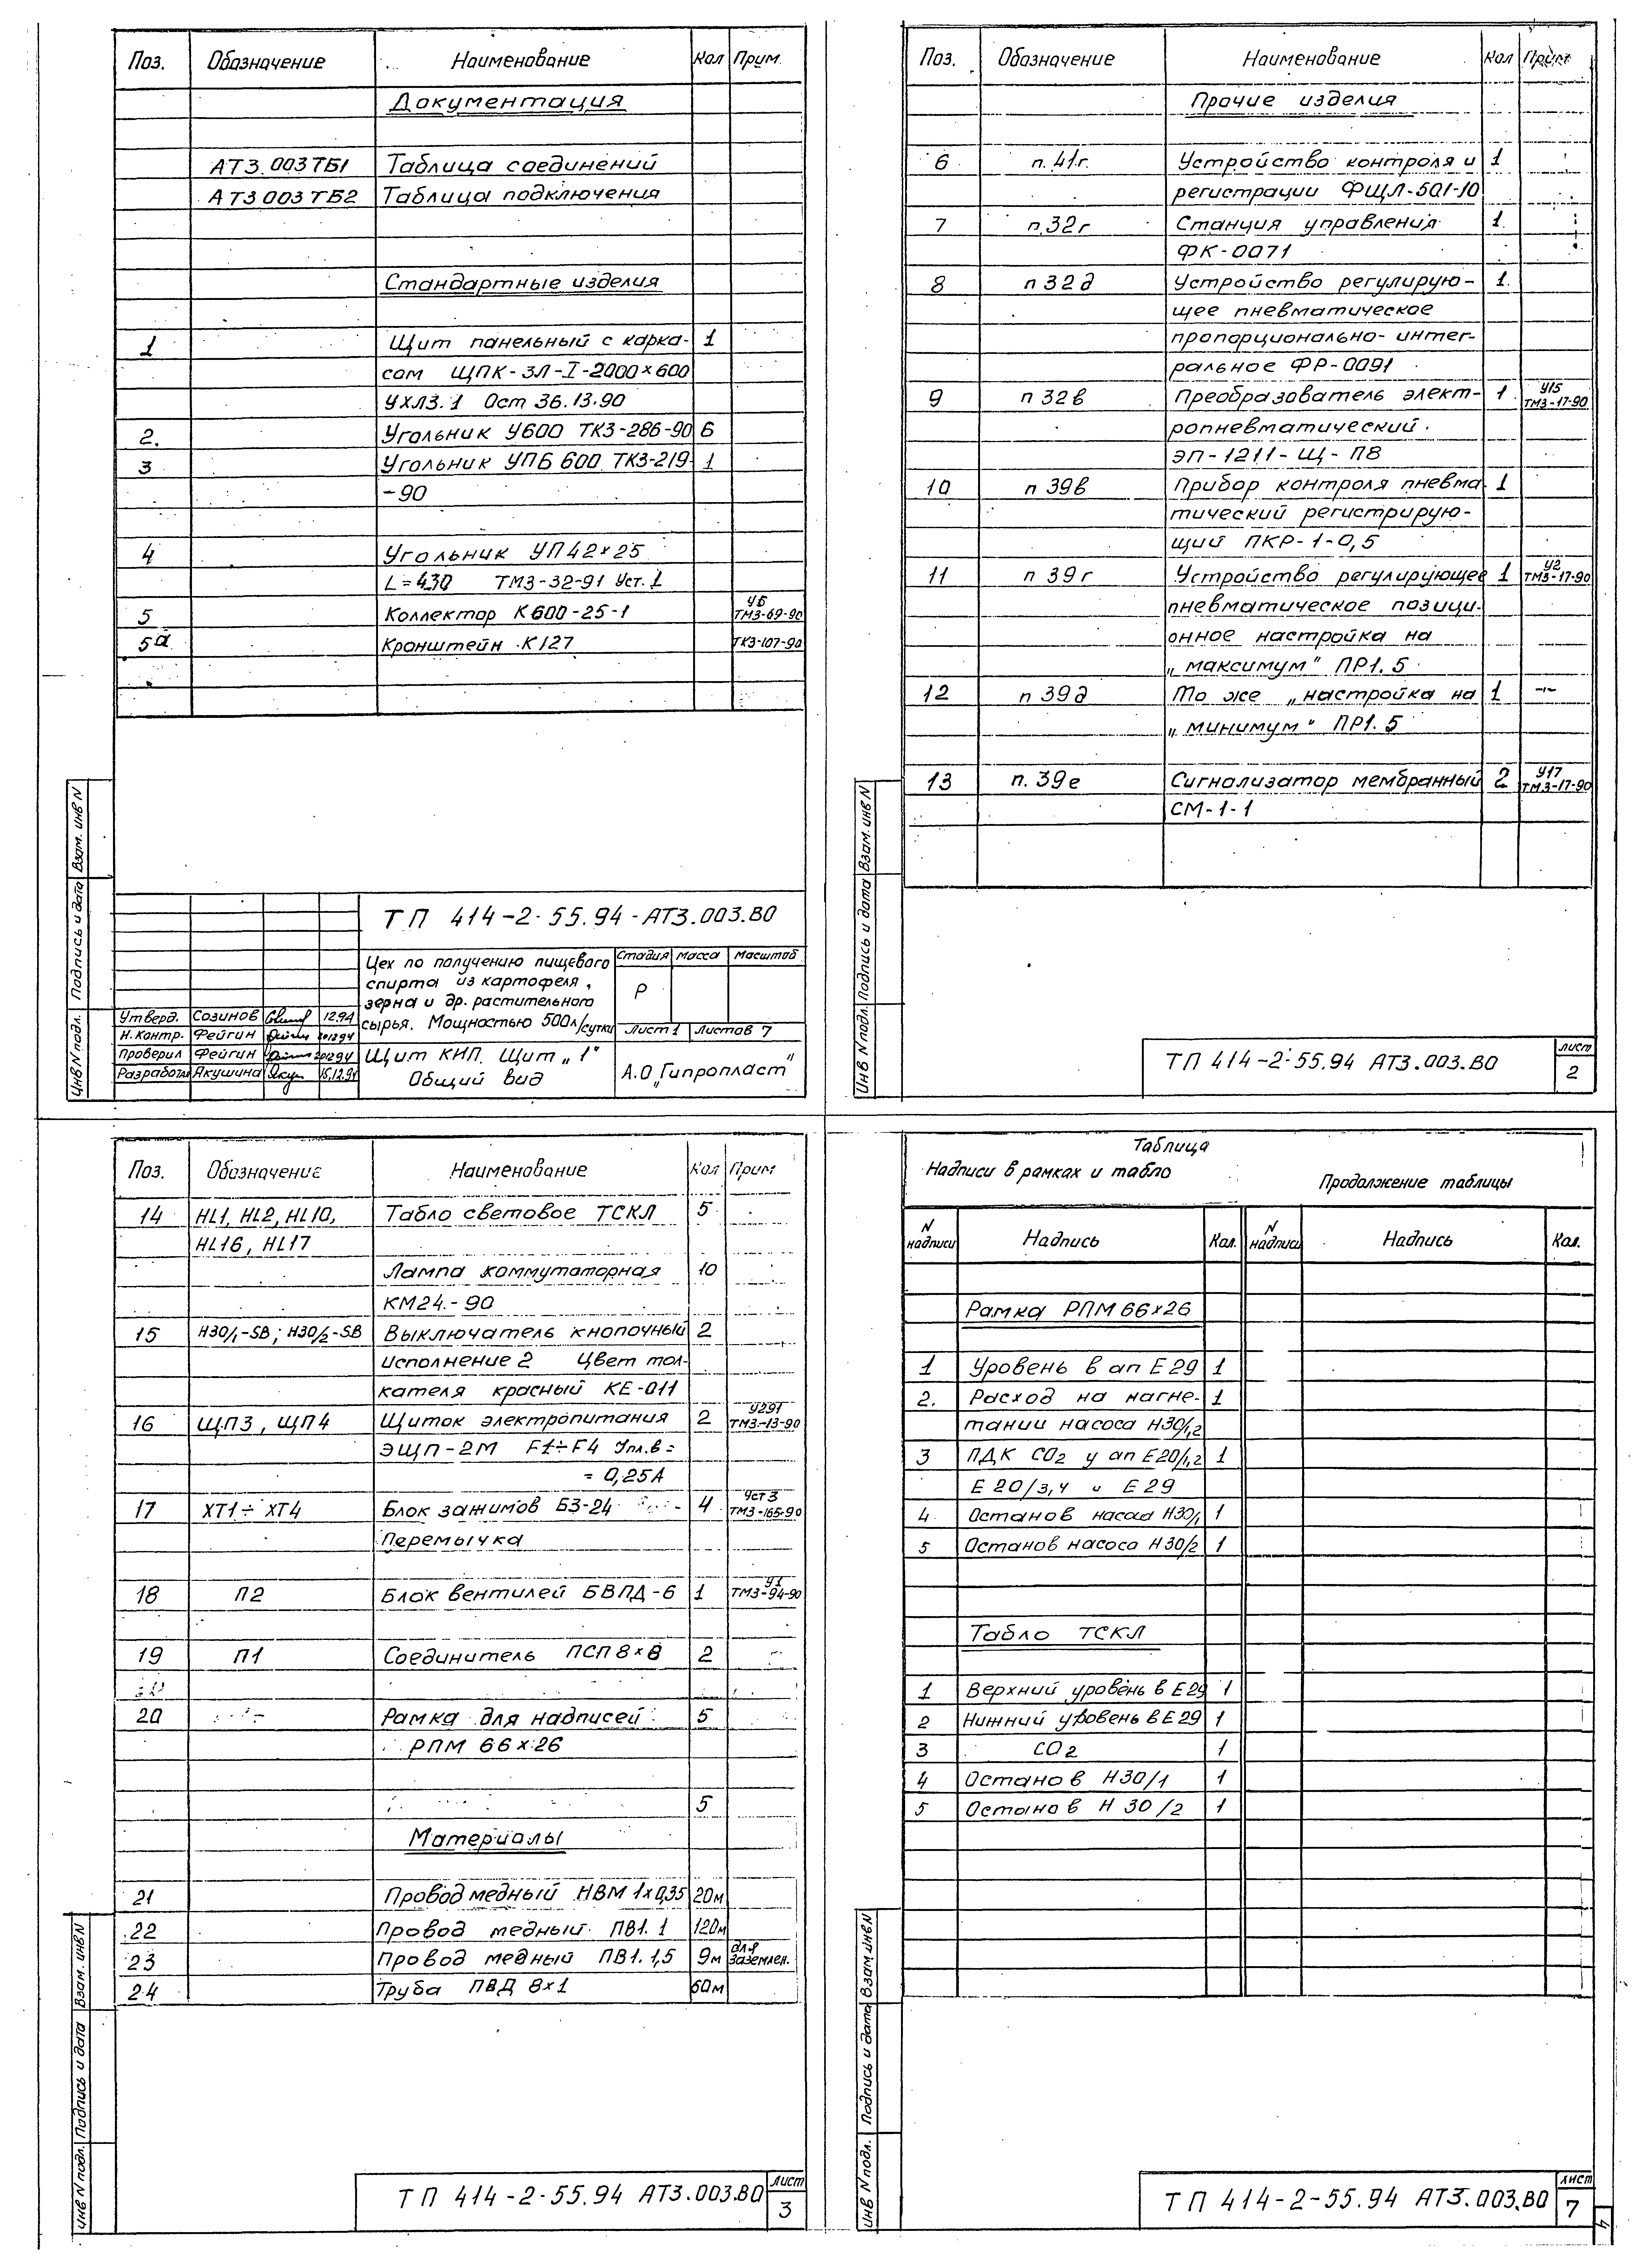 Поз. Обозначение Наименование Кол Прим.
Документация
АТЗ.003ТБ1 Таблица соединений
АТЗ 003 ТБ2 Таблица подключения
Стандартные изделия
1 Щит панельный с карка- 1
сом ЩПК-ЗЛ-I-2000×600
УХЛЗ.1 Ост 36.13.90
2. Угольник У600 ТКЗ-286-90 6
3 Угольник УПБ 600 ТКЗ-219- 1
-90
4 Угольник УП42×25
L=430 ТМЗ-32-91 Уст. 1
5 Коллектор К600-25-1 У6 ТМЗ-69-90
5а Кронштейн К127 ТКЗ-107-90
Инв N подл. Подпись и дата Взам. инв N
ТП 414-2-55.94-АТЗ.003.ВО
Цех по получению пищевого
спирта из картофеля,
зерна и др. растительного
сырья. Мощностью 500л/сутки
Стадия Масса Масштаб
Р
Лист 1 Листов 7
Утверд. Созинов 12.94
Н.контр. Фейгин 20.12.94
Проверил Фейгин 20.12.94
Разработал Якушина 15.12.94
Щит КИП. Щит „1"
Общий вид
А.О „Гипропласт"
Поз. Обозначение Наименование Кол Прим
Прочие изделия
6 п. 41г. Устройство контроля и 1
регистрации ФЩЛ-501-10
7 п.32г Станция управления 1
ФК-0071
8 п 32д Устройство регулирую- 1
щее пневматическое
пропорционально-интег-
ральное ФР-0091
9 п 32в Преобразователь элект- 1 У15 ТМЗ-17-90
ропневматический.
ЭП-1211-Щ-ПВ
10 п 39в Прибор контроля пневма- 1
тический регистрирую-
щий ПКР-1-0,5
11 п 39г Устройство регулирующее 1 У2 ТМЗ-17-90
пневматическое позици-
онное настройка на
„максимум" ПР1.5
12 п 39д То же „настройка на 1 -"-
„минимум" ПР1.5
13 п. 39е Сигнализатор мембранный 2 У17 ТМЗ-17-90
СМ-1-1
Инв N подл. Подпись и дата Взам. инв N
ТП 414-2-55.94 АТЗ.003.ВО
лист
2
Поз. Обозначение Наименование Кол Прим
14 HL1, HL2, HL10, Табло световое ТСКЛ 5
HL16, HL17
Лампа коммутаторная 10
КМ24-90
15 Н30/1-SB; Н30/2-SB Выключатель кнопочный 2
исполнение 2 Цвет тол-
кателя красный КЕ-011
16 ЩП3, ЩП4 Щиток электропитания 2 У291 ТМЗ-13-90
ЭЩП-2М F1÷F4 Iпл.в=
= 0,25А
17 ХТ1÷ХТ4 Блок зажимов БЗ-24 4 Уст 3 ТМЗ-165-90
Перемычка
18 П2 Блок вентилей БВПД-6 1 У1 ТМЗ-94-90
19 П1 Соединитель ПСП 8×8 2
20 Рамка для надписей 5
РПМ 66×26
5
Материалы
21 Провод медный НВМ 1×0,35 20м
22 Провод медный ПВ1. 1 120м
23 Провод медный ПВ1. 1,5 9м для заземлен.
24 Труба ПВД 8×1 60м
Инв N подл. Подпись и дата Взам. инв N
ТП 414-2-55.94 АТЗ.003.ВО
лист
3
Таблица
Надписи в рамках и табло
Продолжение таблицы
N надписи Надпись Кол. N надписи Надпись Кол.
Рамка РПМ 66×26
1 Уровень в ап Е29 1
2. Расход на нагне- 1
тании насоса Н30/1,2
3 ПДК СО2 у ап Е20/1,2 1
Е 20/3,4 и Е 29
4 Останов насоса Н30/1 1
5 Останов насоса Н30/2 1
Табло ТСКЛ
1 Верхний уровень в Е29 1
2 Нижний уровень в Е29 1
3 СО2 1
4 Останов Н30/1 1
5 Останов Н 30/2 1
Инв N подл. Подпись и дата Взам.инв N
ТП 414-2-55.94 АТЗ.003.ВО
лист
7
4